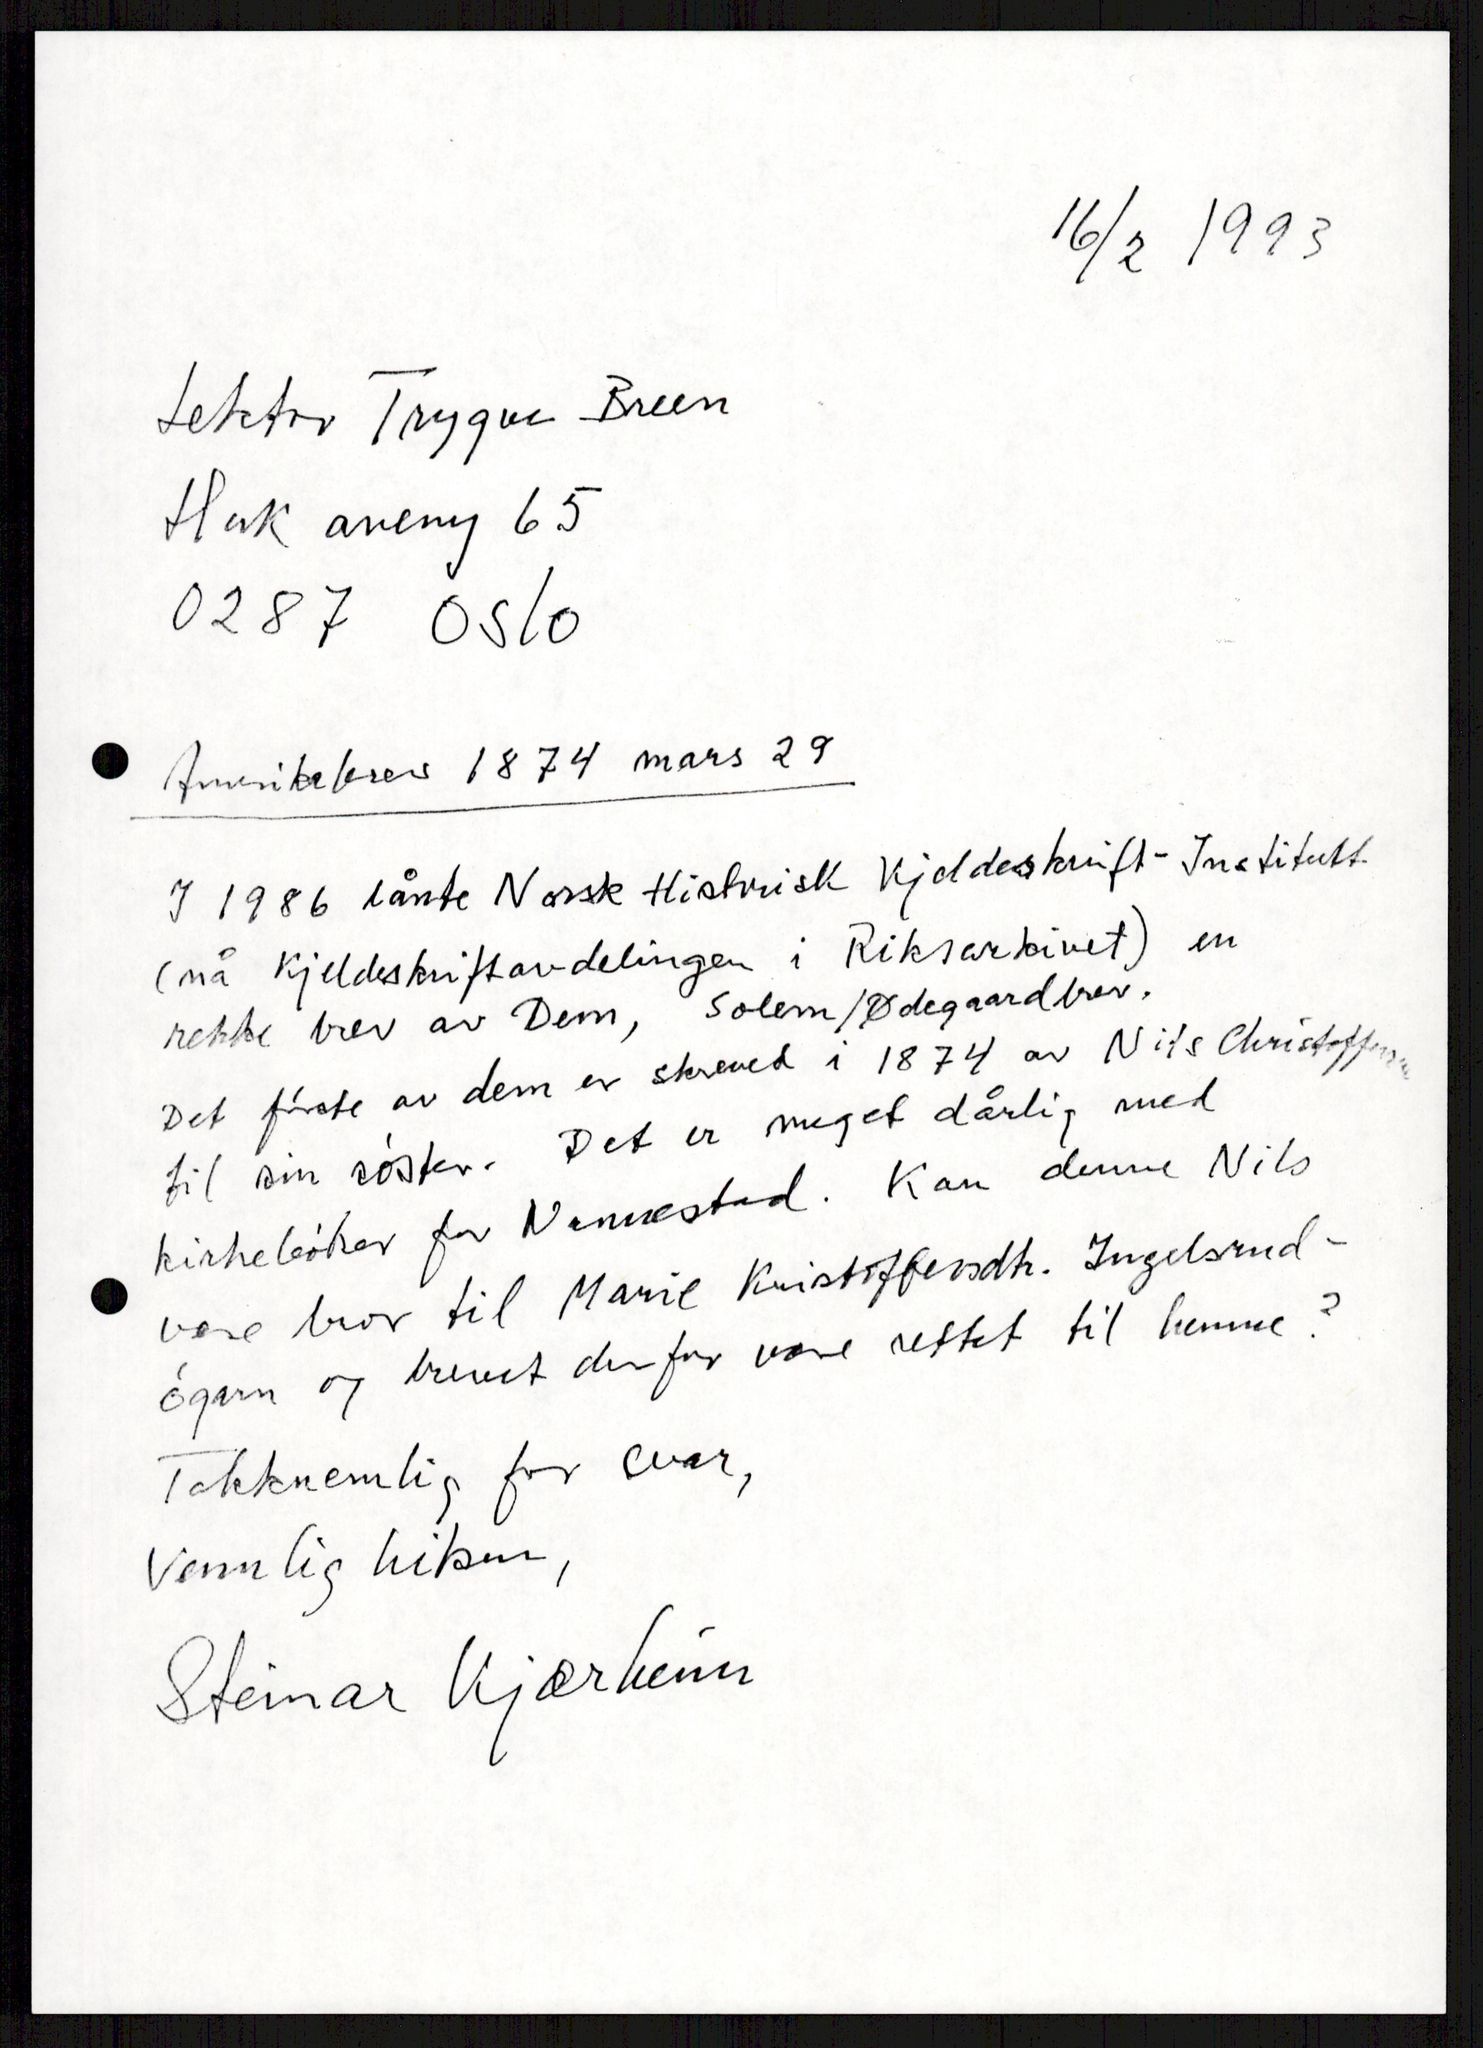 16/2 1993
Lektor Trygve Breen
Huk aveny 65
0287 Oslo
Amerikabrev 1874 mars 29
I 1986 lånte Norsk Historisk Kjeldeskrift-Institutt
(nå Kjeldeskriftavdelingen i Riksarkivet) en
rekke brev av Dem, Solem/Ødegaardbrev.
Det første av dem er skreved i 1874 av Nils Christoffersen
til sin søster. Det er meget dårlig med
kirkebøker for Nannestad. Kan denne Nils
være bror til Marie Kristoffersdtr. Ingelsrud-
ógarn og brevet derfor være rettet til henne?
Takknemlig for svar,
Vennlig hilsen,
Steinar Kjærheim